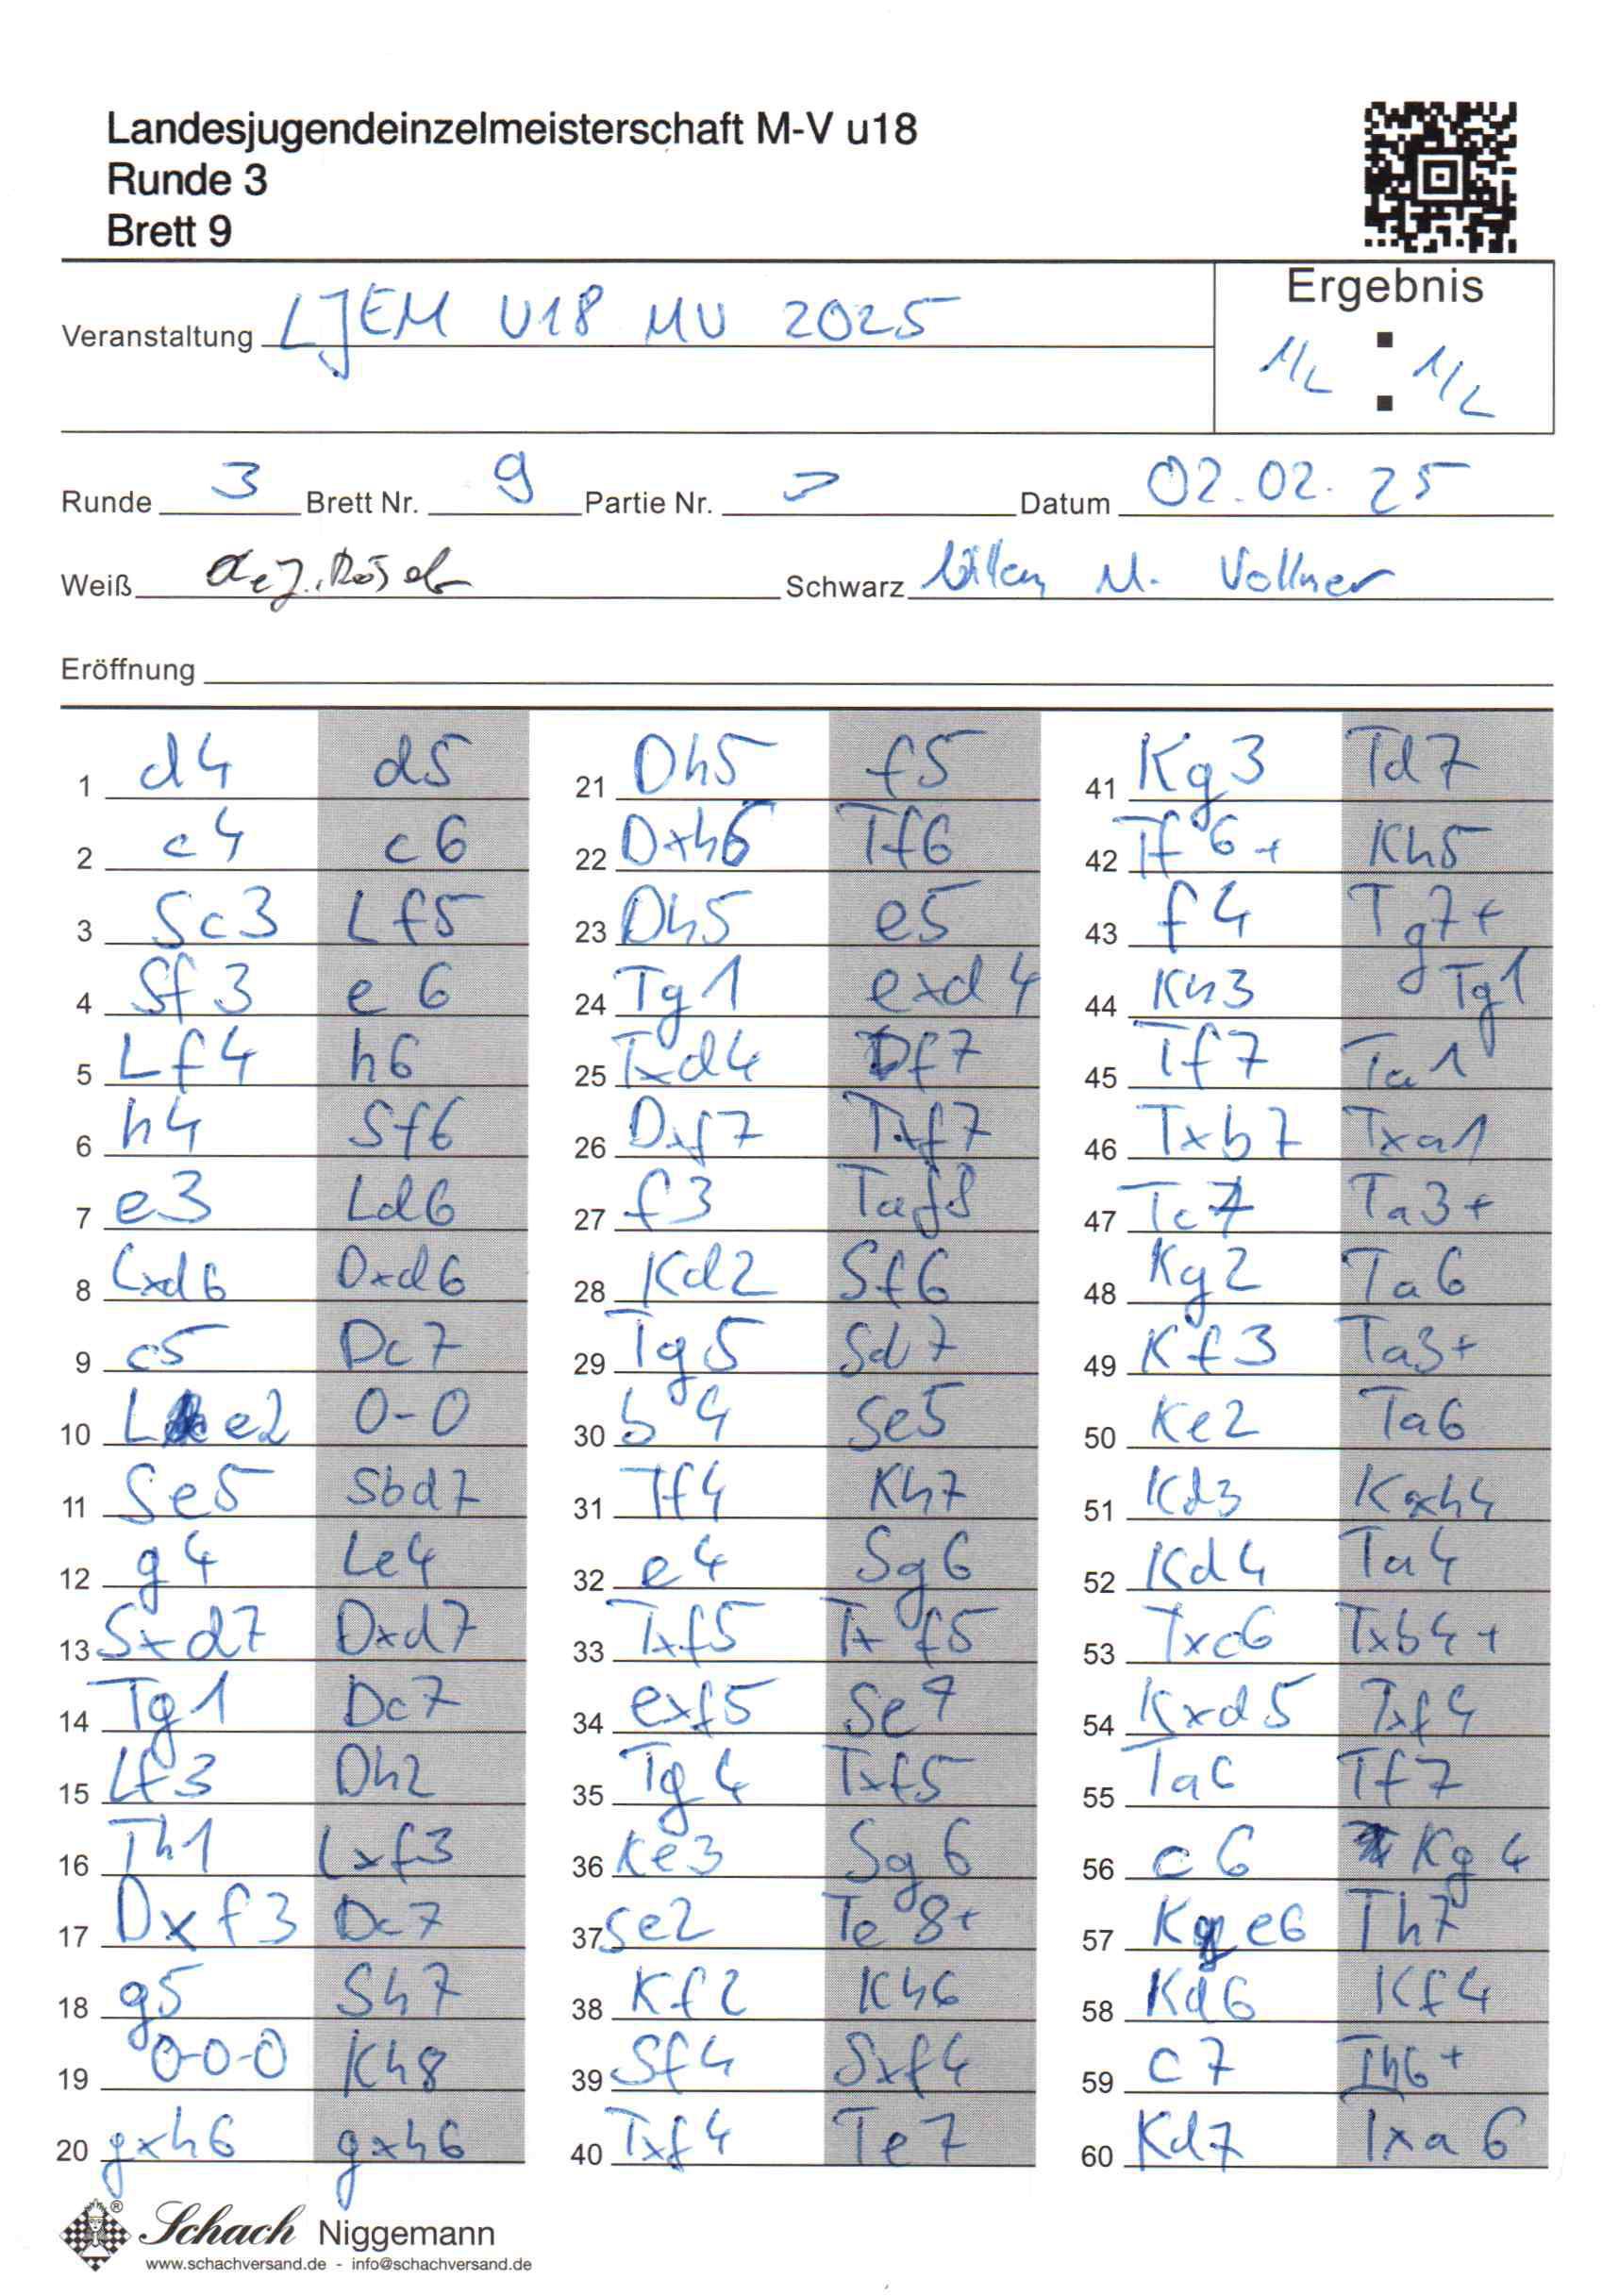 Landesjugendeinzelmeisterschaft M-V u18
Runde 3
Brett 9
Ergebnis
Veranstaltung LJEM U18 MV 2025
1/2 : 1/2
Runde 3 Brett Nr. 9 Partie Nr. Datum 02.02.25
Weiß Schwarz M. Vollmer
Eröffnung
1 d4 d5
2 c4 c6
3 Sc3 Lf5
4 Sf3 e6
5 Lf4 h6
6 h4 Sf6
7 e3 Ld6
8 Lxd6 Dxd6
9 c5 Dc7
10 Le2 0-0
11 Se5 Sbd7
12 g4 Le4
13 Sxd7 Dxd7
14 Tg1 Dc7
15 Lf3 Dh2
16 Th1 Lxf3
17 Dxf3 Dc7
18 g5 Sh7
19 0-0-0 Kh8
20 gxh6 gxh6
21 Dh5 f5
22 Dxh6 Tf6
23 Dh5 e5
24 Tg1 exd4
25 Txd4 Df7
26 Dxf7 Txf7
27 f3 Taf8
28 Kd2 Sf6
29 Tg5 Sd7
30 b4 Se5
31 Tf4 Kh7
32 e4 Sg6
33 Txf5 Txf5
34 exf5 Se7
35 Tg4 Txf5
36 Ke3 Sg6
37 Se2 Te8+
38 Kf2 Kh6
39 Sf4 Sxf4
40 Txf4 Te7
41 Kg3 Td7
42 Tf6+ Kh5
43 f4 Tg7+
44 Kh3 Tg1
45 Tf7 Ta1
46 Txb7 Txa1
47 Tc7 Ta3+
48 Kg2 Ta6
49 Kf3 Ta3+
50 Ke2 Ta6
51 Kd3 Kxh4
52 Kd4 Ta4
53 Txc6 Txb4+
54 Kxd5 Txf4
55 Ta6 Tf7
56 c6 Kg4
57 Ke6 Th7
58 Kd6 Kf4
59 c7 Th6+
60 Kd7 Txa6
® Schach Niggemann
www.schachversand.de - info@schachversand.de